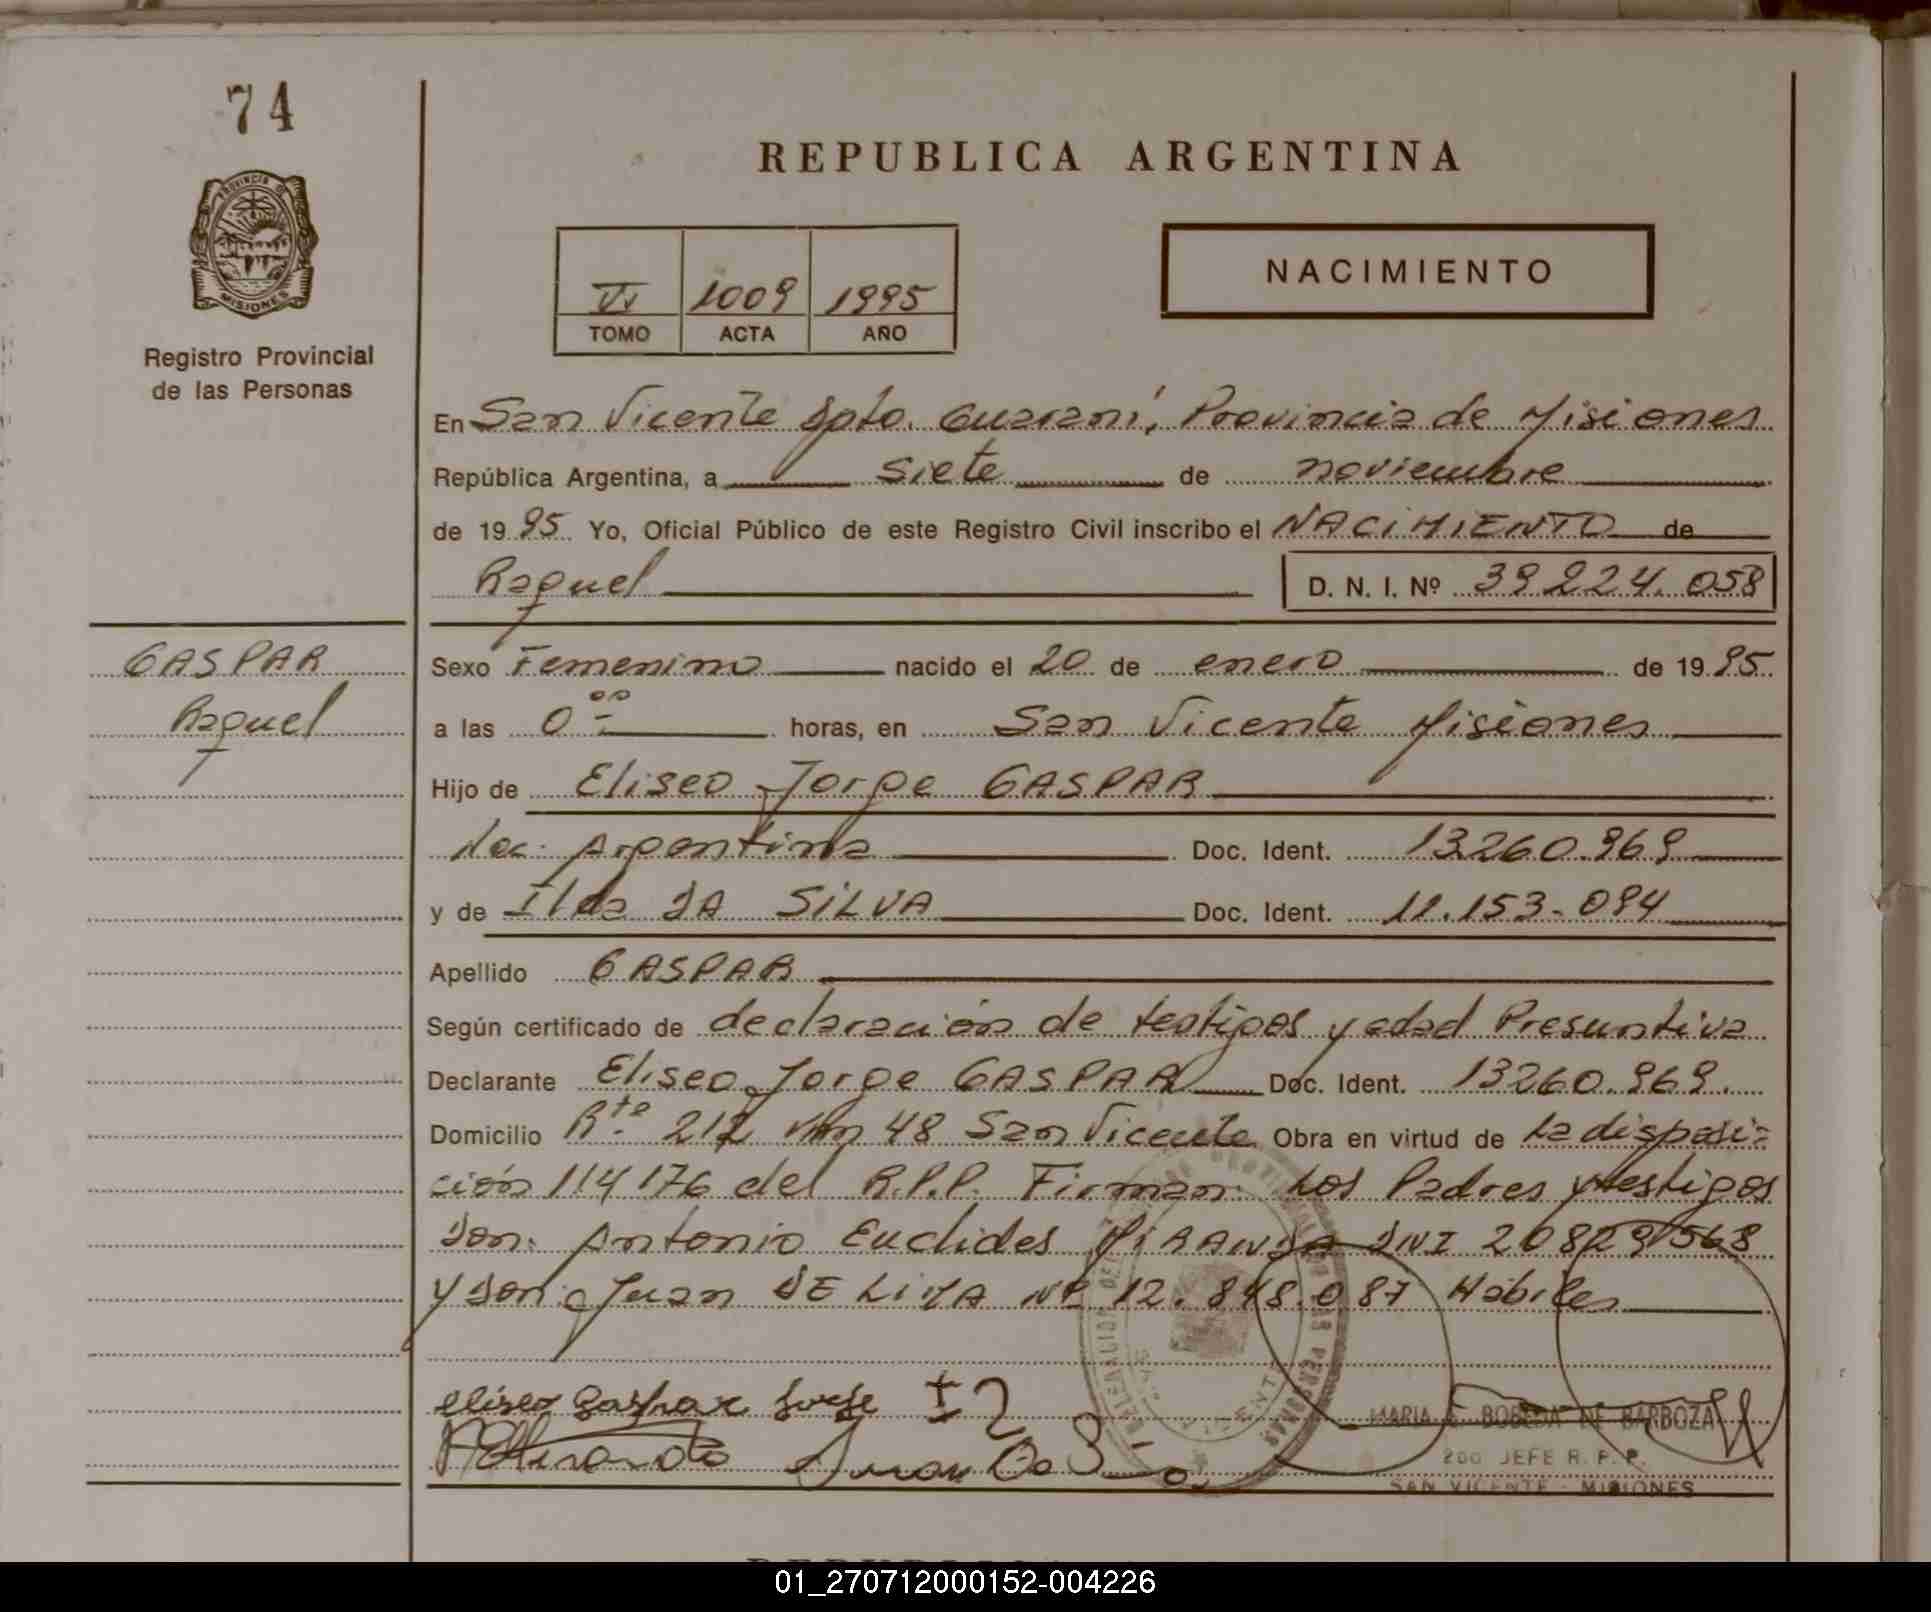 74
REPUBLICA ARGENTINA
PROVINCIA DE
MISIONES
Registro Provincial
de las Personas
VI 1009 1995
TOMO ACTA AÑO
NACIMIENTO
En San Vicente Dpto. Guaraní, Provincia de Misiones
República Argentina, a siete de noviembre
de 1995 Yo, Oficial Público de este Registro Civil inscribo el NACIMIENTO de
Raquel D. N. I. Nº 39224.058
GASPAR
Raquel
Sexo Femenino nacido el 20 de enero de 1995
a las 0 00 horas, en San Vicente Misiones
Hijo de Eliseo Jorge GASPAR
Nac. Argentina Doc. Ident. 13260.969
y de Ilda DA SILVA Doc. Ident. 11.153.094
Apellido GASPAR
Según certificado de declaración de testigos y edad Presuntiva
Declarante Eliseo Jorge GASPAR Doc. Ident. 13260.969.
Domicilio Rta 212 Km 48 San Vicente Obra en virtud de La disposi-
ción 114/76 del R.P.P. Firman Los Padres y testigos
Don. Antonio Euclides MIRANDA DNI 20829568
y Don. Juan DE LIMA Nº 12.848.087 Hábiles
eliseo Gaspar Jorge
MARIA BOBEDA DE BARBOZA
2do JEFE R. P. P.
SAN VICENTE - MISIONES
01_270712000152-004226